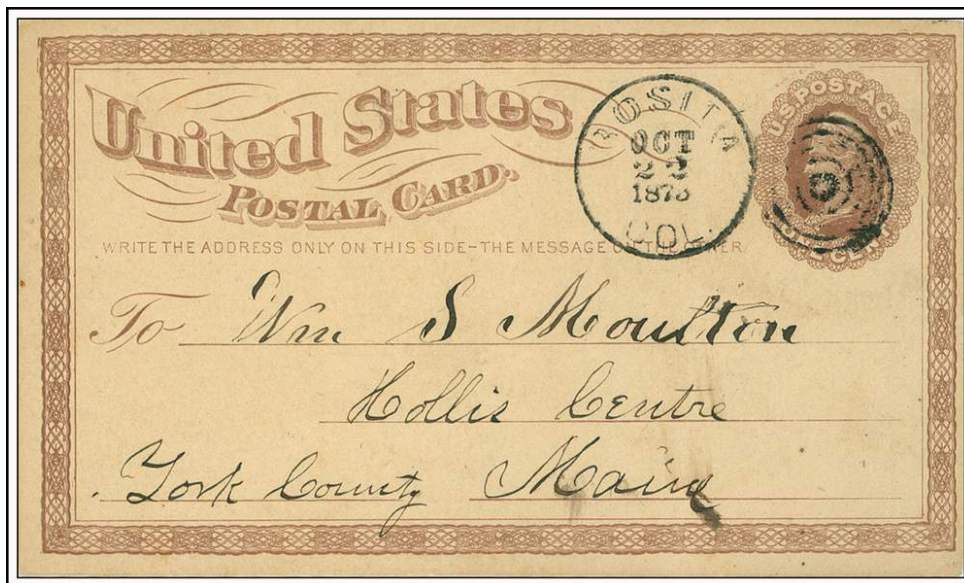 United States
POSTAL CARD.
ROSITA
OCT
22
1873
COL.
U.S. POSTAGE
ONE CENT
WRITE THE ADDRESS ONLY ON THIS SIDE-THE MESSAGE ON THE OTHER
To Wm S Moulton
Hollis Centre
York County Maine